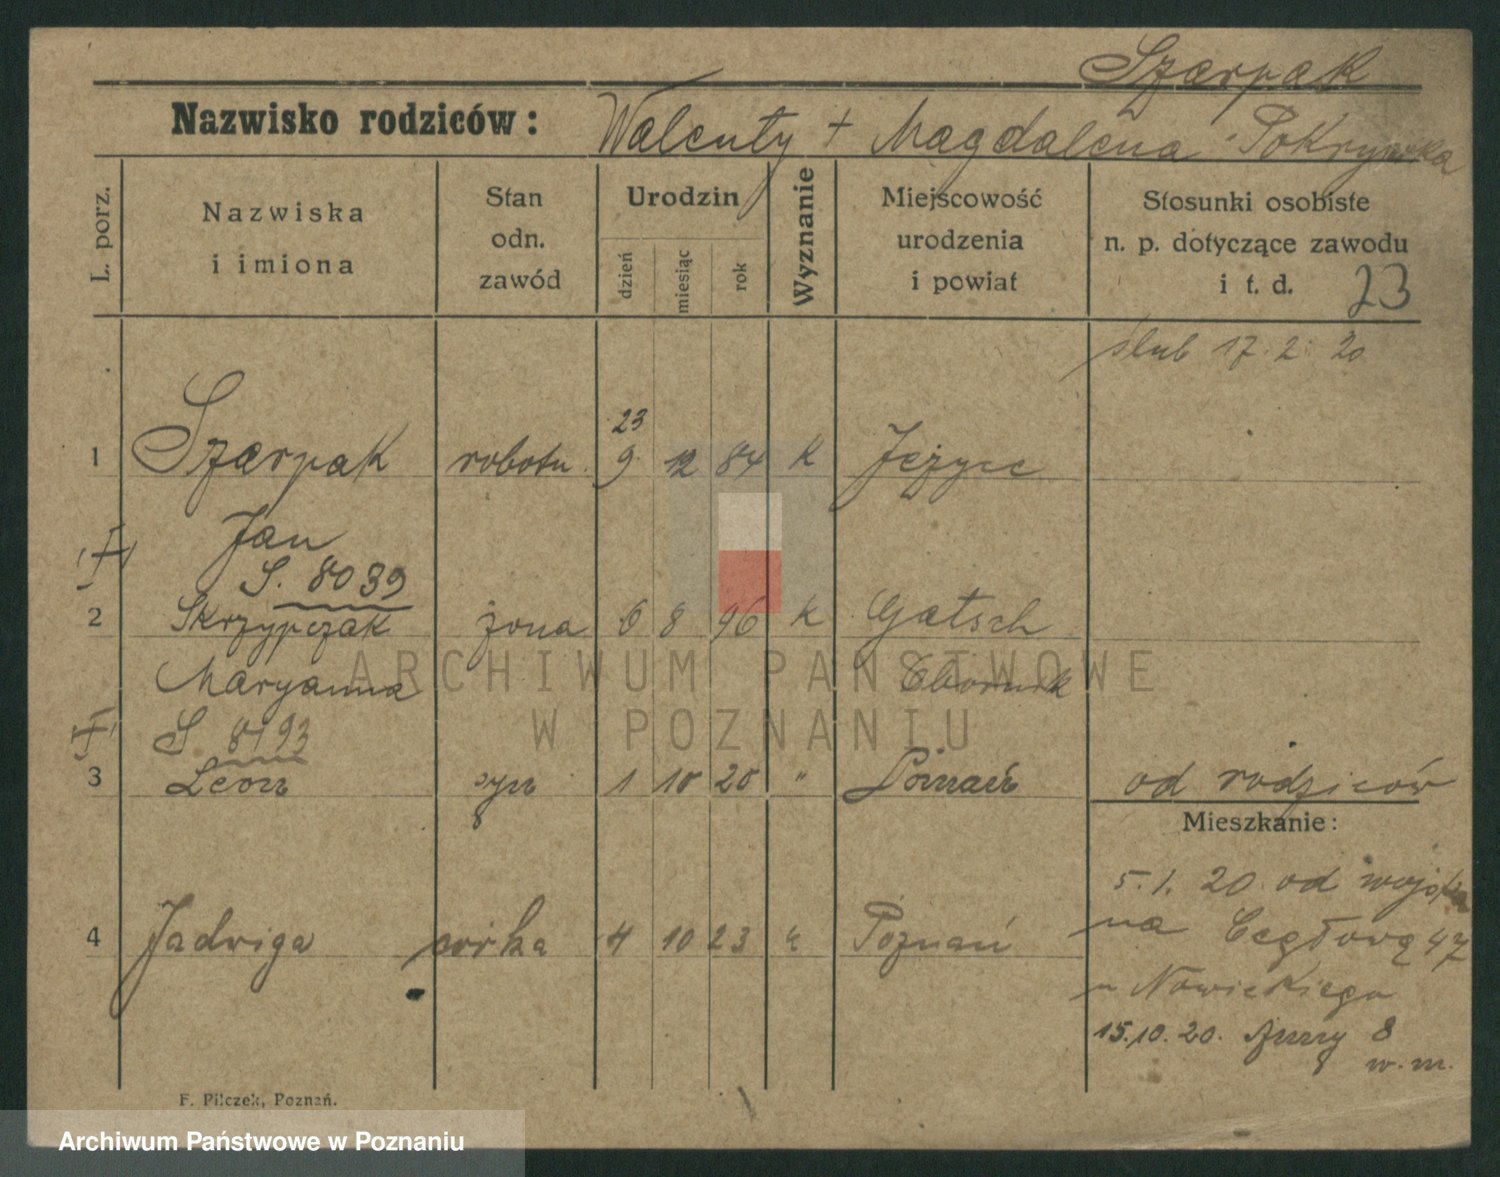 Szarpak
Nazwisko rodziców: Walenty + Magdalena Pokrywka
L. porz.
Nazwiska i imiona
Stan odn. zawód
Urodzin
dzień
miesiąc
rok
Wyznanie
Miejscowość urodzenia i powiat
Stosunki osobiste n. p. dotyczące zawodu i t. d. 23
ślub 17. 2. 20
23
1 Szarpak robotn. 9 12 84 K Jeżyce
Jan
S. 8039
2 Skrzypczak żona 6 8 96 K Gatsch
Maryanna Obornik
S 8193
3 Leon syn 1 10 20 " Poznań od rodziców
Mieszkanie:
5. 1. 20 od wojska
4 Jadwiga córka 4 10 23 " Poznań na Cegłową 47
u Nowickiego
15. 10. 20. 8
w. m.
F. Pilczek, Poznań.
ARCHIWUM PAŃSTWOWE
W POZNANIU
Archiwum Państwowe w Poznaniu